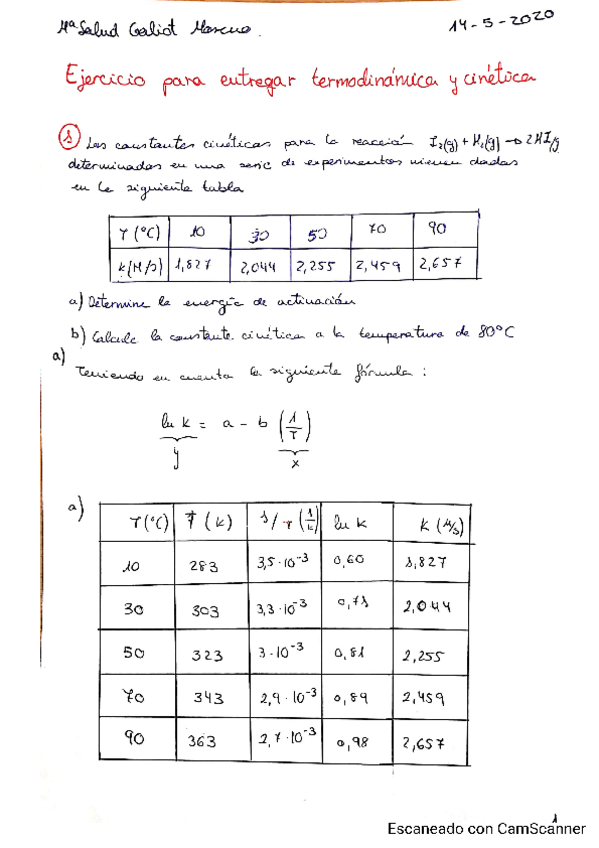 Mª Salud Galiot Moreno.
14-5-2020
Ejercicio para entregar termodinámica y cinética
① Las constantes cinéticas para la reacción I₂(g) + H₂(g) → 2HI(g)
determinadas en una serie de experimentos vienen dadas
en la siguiente tabla
T (ºC) 10 30 50 70 90
k (M/s) 1,827 2,044 2,255 2,459 2,657
a) Determine la energía de activación
b) Calcule la constante cinética a la temperatura de 80ºC
a)
Teniendo en cuenta la siguiente fórmula :
ln k = a - b (1/T)
y x
a)
T (ºC) T (k) 1/T (1/k) ln k K (M/s)
10 283 3,5·10⁻³ 0,60 1,827
30 303 3,3·10⁻³ 0,71 2,044
50 323 3·10⁻³ 0,81 2,255
70 343 2,9·10⁻³ 0,89 2,459
90 363 2,7·10⁻³ 0,98 2,657
1
Escaneado con CamScanner